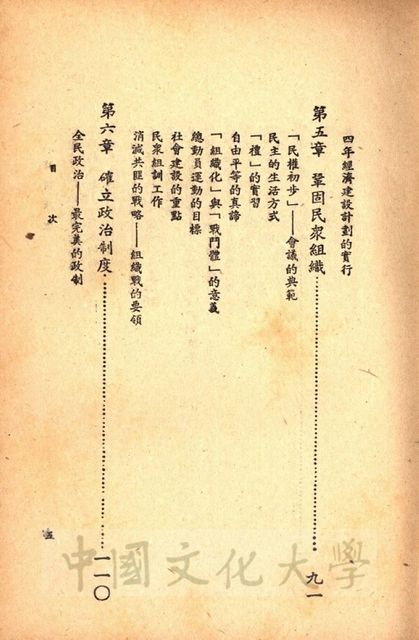 四年經濟建設計劃的實行
第五章 鞏固民衆組織……………………………九一
「民權初步」——會議的典範
民主的生活方式
「禮」的實習
自由平等的真諦
「組織化」與「戰鬥體」的意義
總動員運動的目標
社會建設的重點
民衆組訓工作
消滅共匪的戰略——組織戰的要領
第六章 確立政治制度……………………………一一〇
全民政治——最完美的政制
目次
五
中國文化大學